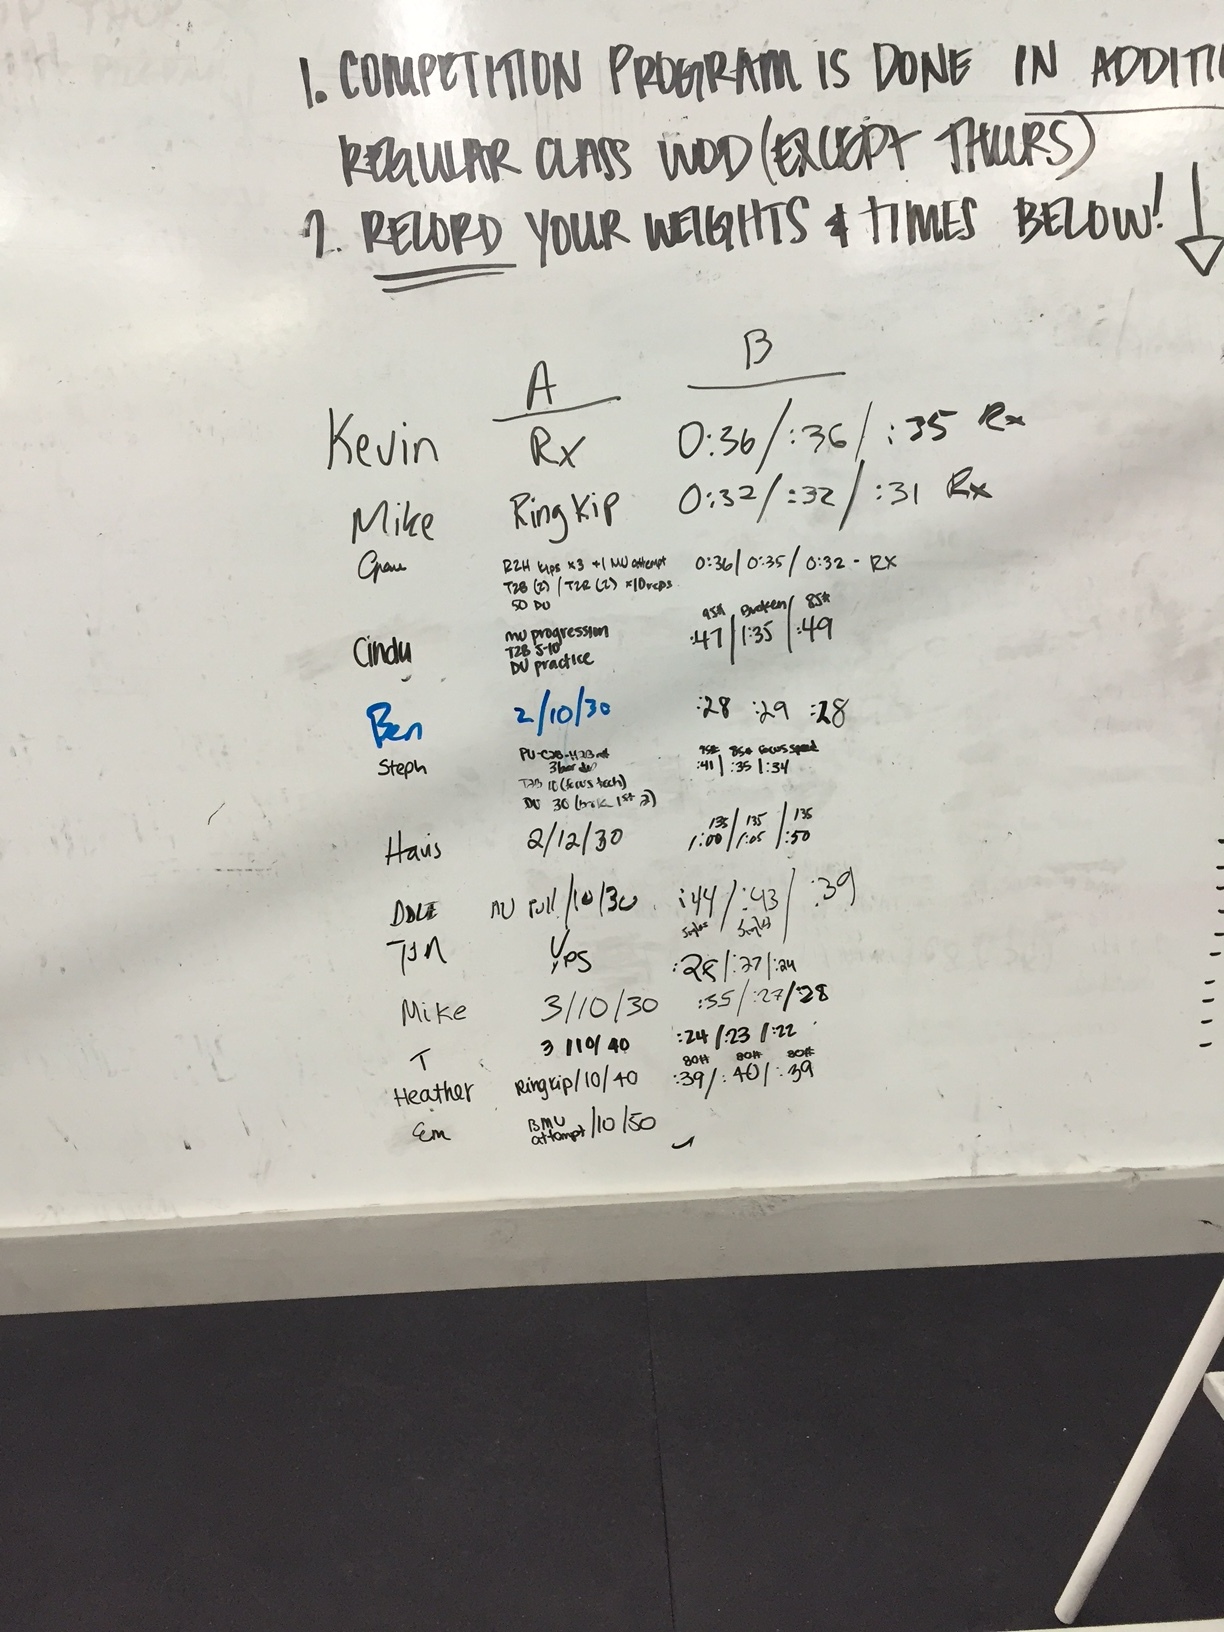 1. COMPETITION PROGRAM IS DONE IN ADDITI
REGULAR CLASS WOD (EXCEPT THURS)
2. RECORD YOUR WEIGHTS & TIMES BELOW!
A B
Kevin Rx 0:36/:36/:35 Rx
Mike Ring Kip 0:32/:32/:31 Rx
R2H kips x3 +1 MU attempt 0:36/0:35/0:32 - RX
T2B (2) / T2R (2) x10 reps
50 DU
95# Broken 85#
Cindy MU progression :47/1:35/:49
T2B 5-10
DU practice
Ben 2/10/30 :28 :29 :28
PU-C2B-H2B 95# 85# focus speed
Steph 3 :41/:35/:34
T2B 10 (focus tech)
DU 30 (1st 2)
135 135 135
Havis 2/12/30 1:00/1:05/:50
MU Pull/10/30 :44/:43/:39
Singles Singles
TIM Yes :28/:27/:24
Mike 3/10/30 :35/:27/:28
T 3/10/40 :24/:23/:22
80# 80# 80#
Heather Ring kip/10/40 :39/:40/:39
Em BMU attempt/10/50